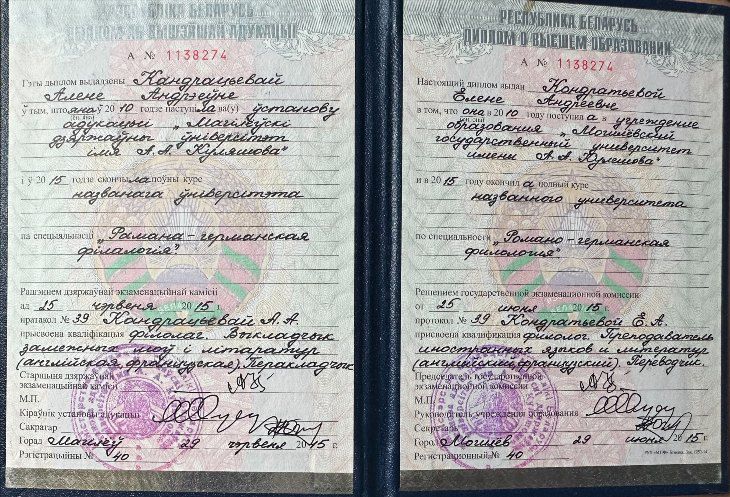 РЭСПУБЛІКА БЕЛАРУСЬ
ДЫПЛОМ АБ ВЫШЭЙШАЙ АДУКАЦЫІ
А № 1138274
Гэты дыплом выдадзены Кандрацьевай
Алене Андрэеўне
ў тым, што яна ў 2010 годзе паступіла ва(у) ўстанову
адукацыі „Магілёўскі
дзяржаўны ўніверсітэт
імя А.А. Куляшова"
і ў 2015 годзе скончыла поўны курс
названага ўніверсітэта
па спецыяльнасці „Рамана-германская
філалогія".
Рашэннем дзяржаўнай экзаменацыйнай камісіі
ад 25 чэрвеня 2015 г.
пратакол № 39 Кандрацьевай А.А.
прысвоена кваліфікацыя філолаг. Выкладчык
замежных моў і літаратур
(англійская, французская). Перакладчык
Старшыня дзяржаўнай
экзаменацыйнай камісіі
М.П.
Кіраўнік установы адукацыі
Сакратар
Горад Магілёў 29 чэрвеня 2015 г.
Рэгістрацыйны № 40
РЕСПУБЛИКА БЕЛАРУСЬ
ДИПЛОМ О ВЫСШЕМ ОБРАЗОВАНИИ
А № 1138274
Настоящий диплом выдан Кондратьевой
Елене Андреевне
в том, что она в 2010 году поступила в учреждение
образования „Могилёвский
государственный университет
имени А.А. Кулешова"
и в 2015 году окончила полный курс
названного университета
по специальности „Романо-германская
филология".
Решением государственной экзаменационной комиссии
от 25 июня 2015 г.
протокол № 39 Кондратьевой Е.А.
присвоена квалификация филолог. Преподаватель
иностранных языков и литератур
(английский, французский). Переводчик.
Председатель государственной
экзаменационной комиссии
М.П.
Руководитель учреждения образования
Секретарь
Город Могилев 29 июня 2015 г.
Регистрационный № 40